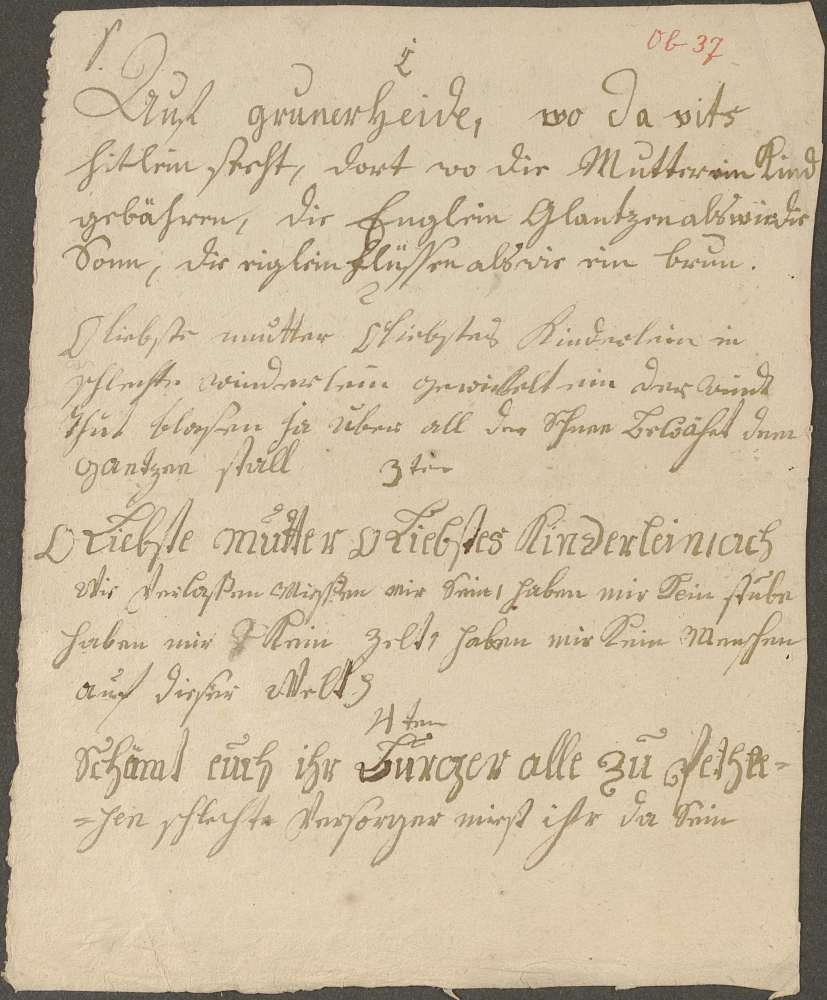 Ob 37
1
Auf grunerheide, wo da vits
hitlein steht, dort wo die Mutter ein Kind
gebähren, die Englein Glantzen als wie die
Sonn, die eiglein flüssen als wie ein brun.
2
O liebste mutter O liebstes Kinderlein in
schlechte winderlein gewickelt ein der wind
thut blasen ja über all der Schnee Bewähet dem
gantzen stall 3ter
O Liebste mutter O Liebstes Kinderlein, ach
wie verlassen miessen mir sein, haben mir kein stube
haben mir kein Zelt, haben mir kein Menschen
auf dieser Welt
4ten
Schämt euch ihr Burger alle zu Bethle=
=hen schlechte Versorger miest ihr da sein